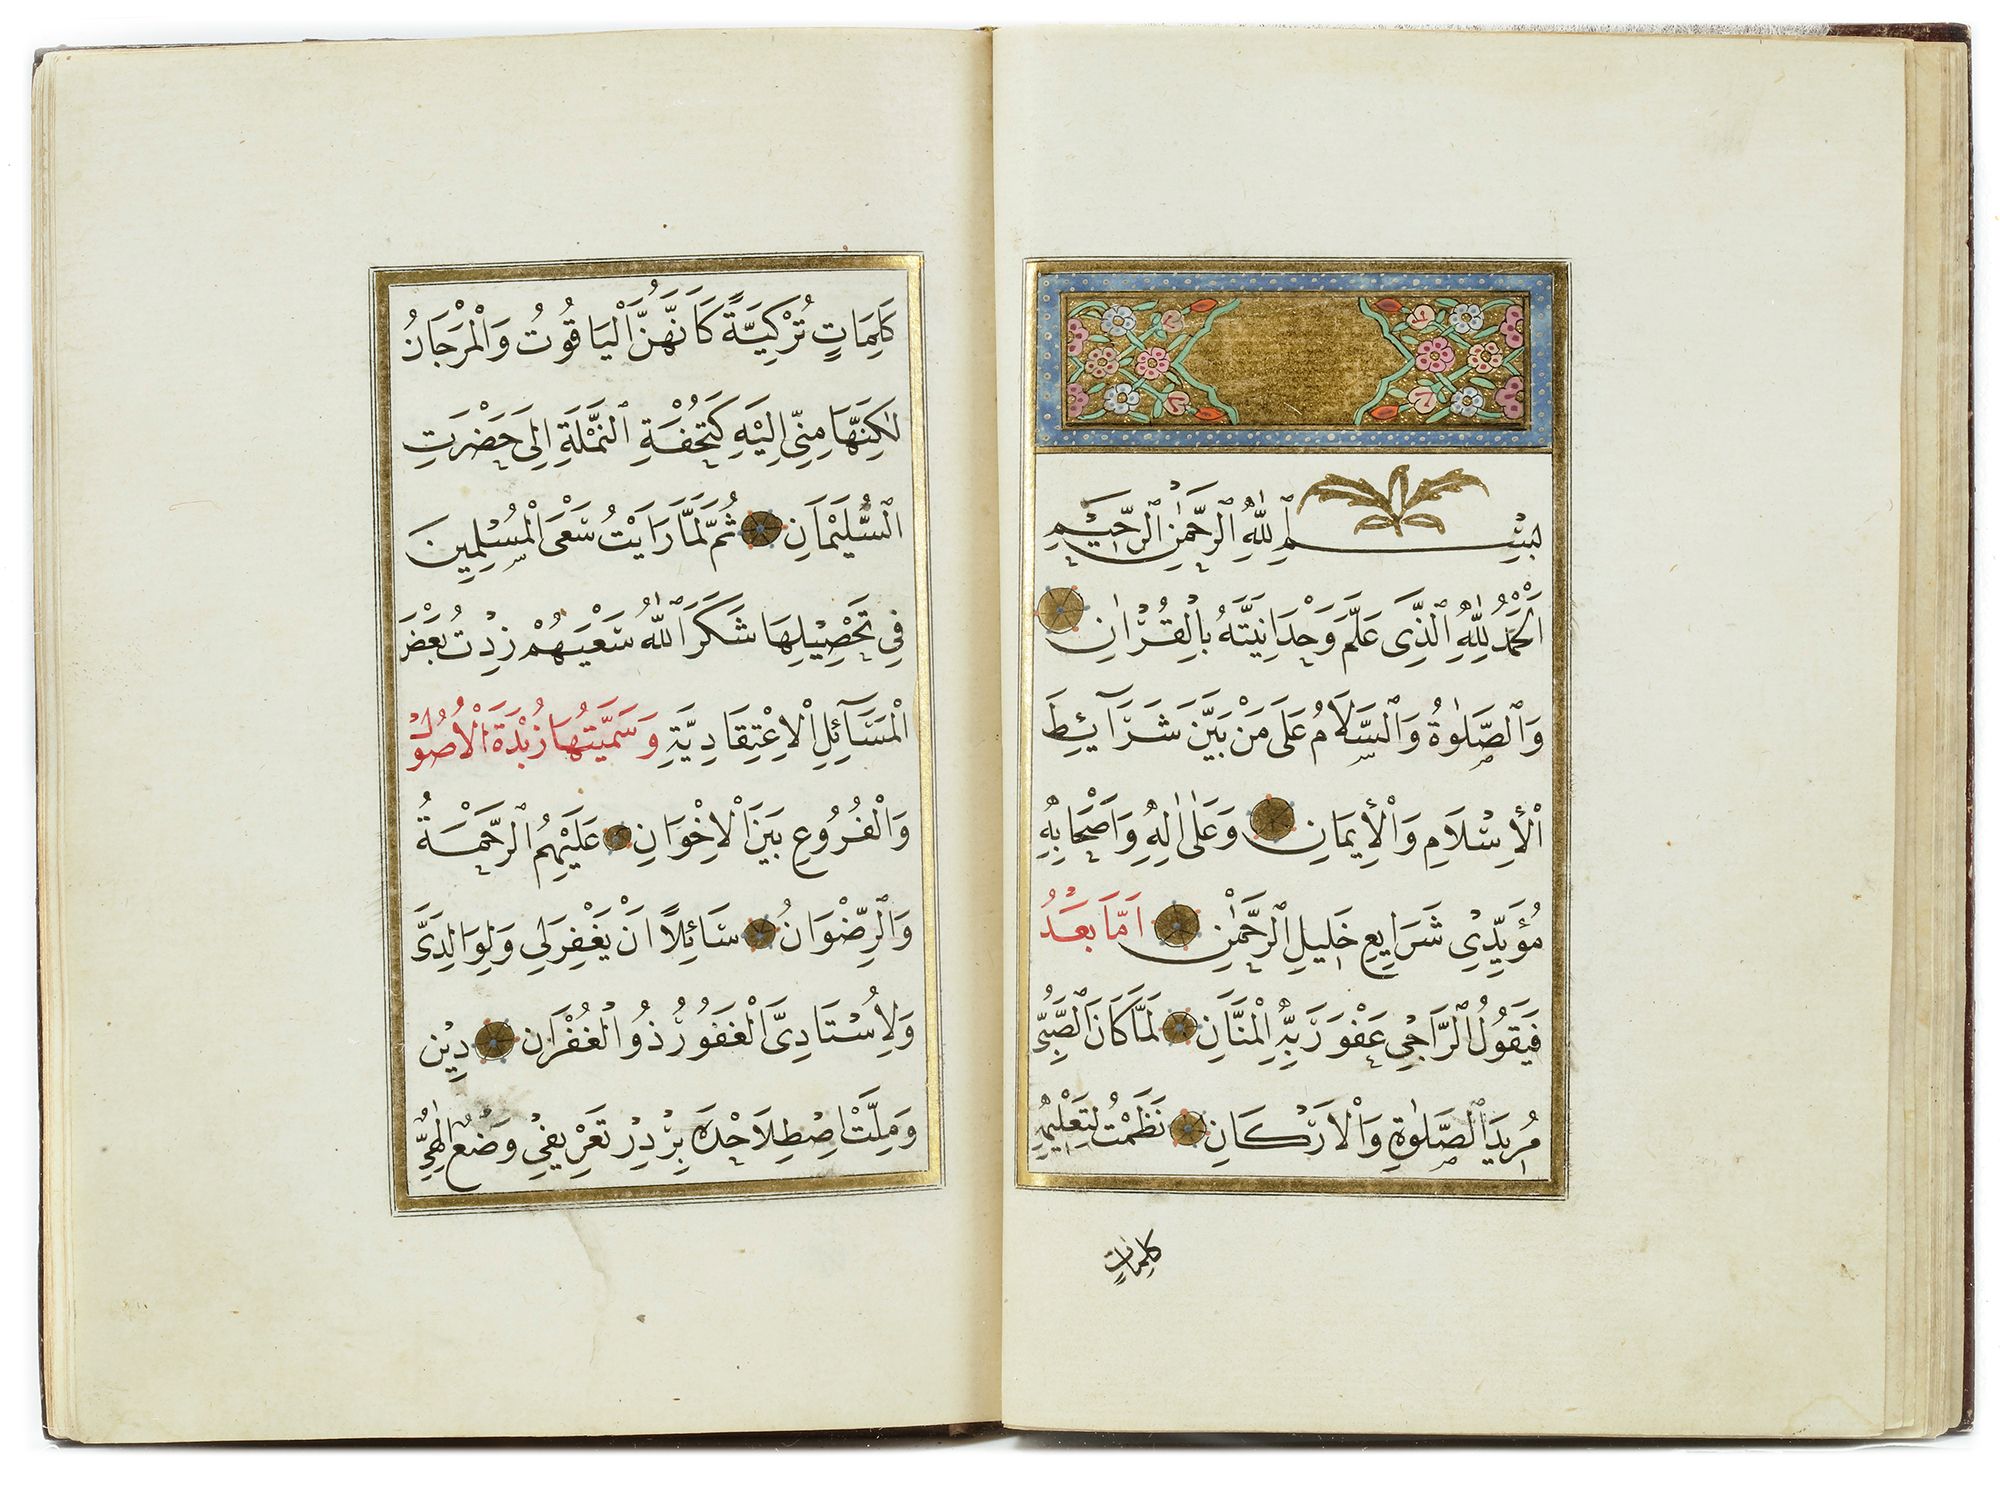 بِسْمِ اللّٰهِ الرَّحْمٰنِ الرَّحِيمِ
اَلْحَمْدُ لِلّٰهِ الَّذِى عَلَّمَ وَحْدَانِيَّتَهُ بِالْقُرْاٰنِ
وَالصَّلٰوةُ وَالسَّلَامُ عَلَى مَنْ بَيَّنَ شَرَآئِطَ
الْاِسْلَامِ وَالْاِيمَانِ وَعَلٰى اٰلِهِ وَاَصْحَابِهِ
مُؤَيِّدِى شَرَايِعِ خَلِيلِ الرَّحْمٰنِ اَمَّا بَعْدُ
فَيَقُولُ الرَّاجِى عَفْوَ رَبِّهِ الْمَنَّانِ لَمَّا كَانَ الصَّبِىُّ
مُرِيدَ الصَّلٰوةِ وَالْاَرْكَانِ نَظَمْتُ لِتَعْلِيمِهِ
كَلِمَاتٍ
كَلِمَاتٍ تُرْكِيَّةً كَاَنَّهُنَّ الْيَاقُوتُ وَالْمَرْجَانُ
لٰكِنَّهَا مِنِّى اِلَيْهِ كَتُحْفَةِ النَّمْلَةِ اِلَى حَضْرَتِ
السُّلَيْمَانِ ثُمَّ لَمَّا رَاَيْتُ سَعْىَ الْمُسْلِمِينَ
فِى تَحْصِيلِهَا شَكَرَ اللّٰهُ سَعْيَهُمْ زِدْتُ بَعْضَ
الْمَسَآئِلِ الْاِعْتِقَادِيَّةِ وَسَمَّيْتُهَا زُبْدَةَ الْاُصُولِ
وَالْفُرُوعِ بَيْنَ الْاِخْوَانِ عَلَيْهِمُ الرَّحْمَةُ
وَالرِّضْوَانُ سَائِلًا اَنْ يَغْفِرَ لِى وَلِوَالِدَىَّ
وَلِاُسْتَادِىَّ الْغَفُورُ ذُو الْغُفْرَانِ دِيْنِ
وَمِلَّتْ اِصْطِلَاحْدَه بِرْدِرْ تَعْرِيفِى وَضْعٌ اِلٰهِىٌّ